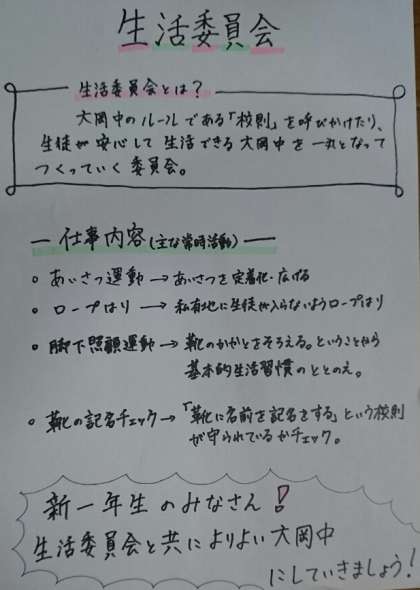 生活委員会
生活委員会とは？
大岡中のルールである「校則」を呼びかけたり、
生徒が安心して生活できる大岡中を一丸となって
つくっていく委員会。
― 仕事内容(主な常時活動) ―
○ あいさつ運動 → あいさつを定着化・広げる
○ ロープはり → 私有地に生徒が入らないようロープはり
○ 脚下照顧運動 → 靴のかかとをそろえる。ということから
基本的生活習慣のととのえ。
○ 靴の記名チェック → 「靴に名前を記名をする」という校則
が守られているかチェック。
新一年生のみなさん!
生活委員会と共によりよい大岡中
にしていきましょう!